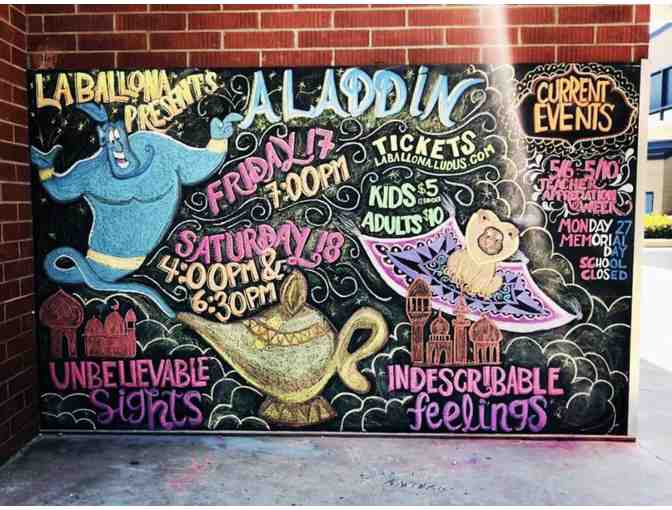 LA BALLONA PRESENT'S
ALADDIN
FRIDAY 17
7:00PM
SATURDAY 18
4:00PM &
6:30PM
TICKETS
LABALLONA.LUDUS.COM
KIDS $5
ADULTS $10
UNBELIEVABLE
Sights
INDESCRIBABLE
feelings
CURRENT
EVENTS
5/6-5/10
TEACHER
APPRECIATION
WEEK
MONDAY 27
MEMORIAL
DAY
SCHOOL
CLOSED